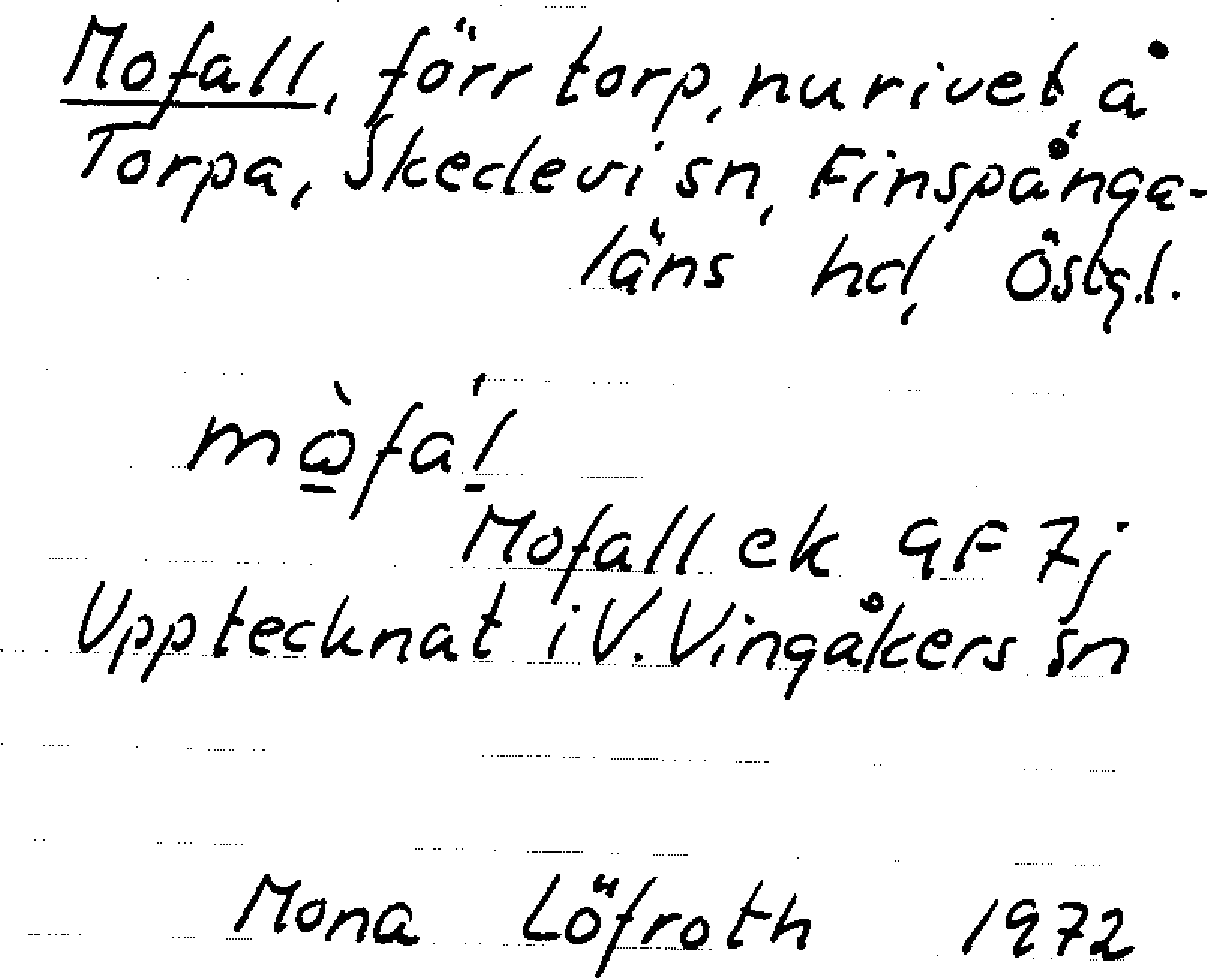 Mofall, förr torp, nu rivet, å
Torpa, Skedevi sn, Finspånga-
läns hd, Östg.l.
mὼ̲fa´l̲
Mofall ek 9F 7j
Upptecknat i V. Vingåkers sn
Mona Löfroth 1972